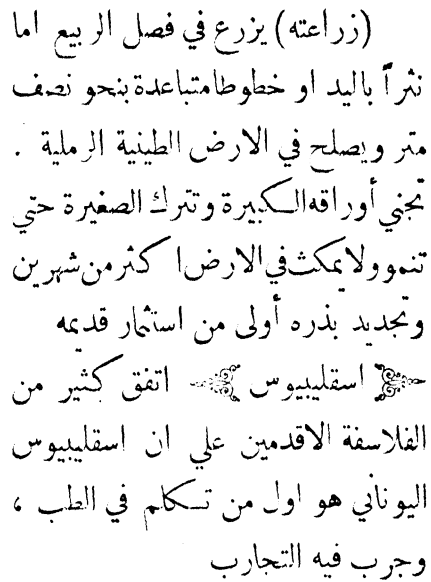 (زراعته) يزرع في فصل الربيع اما
نثراً باليد او خطوطا متباعدة بنحو نصف
متر ويصلح في الارض الطينية الرملية .
تجني أوراقه الكبيرة وتترك الصغيرة حتي
تنمو ولا يمكث في الارض اكثر من شهرين
وتجديد بذره أولى من استثمار قديمه
﴿ اسقليبيوس ﴾ اتفق كثير من
الفلاسفة الاقدمين علي ان اسقليبيوس
اليوناني هو اول من تكلم في الطب ،
وجرب فيه التجارب